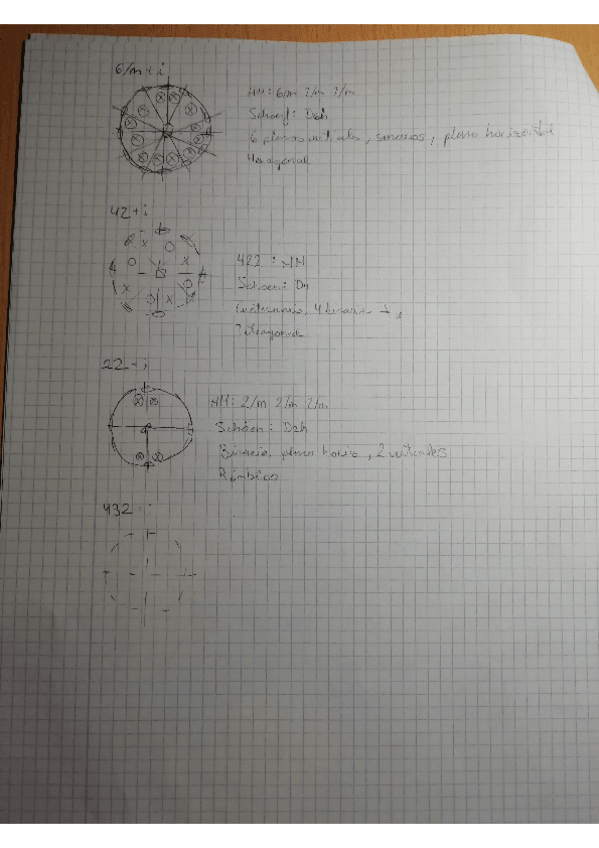 6/m + i
HM: 6/m 2/m 2/m
Schoenf: D6h
6 planos verticales, senarios, plano horizontal
Hexagonal
42 + i
422 : HM
Schoen: D4
Cuaternario, 4 binarios
Tetragonal
22 + i
HM: 2/m 2/m 2/m
Schoen: D2h
Binario, plano horiz, 2 verticales
Rómbico
432 + i